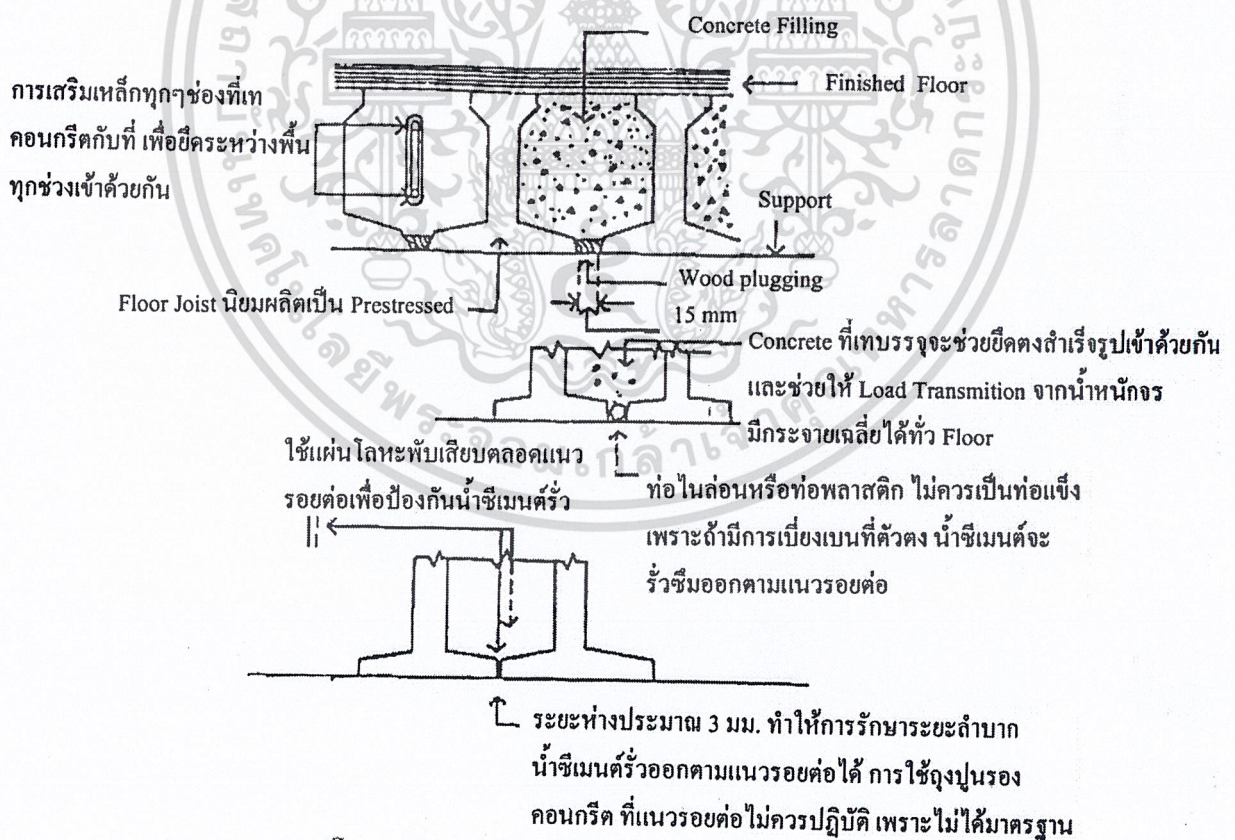 Concrete Filling
Finished Floor
การเสริมเหล็กทุกๆช่องที่เท
คอนกรีตกับที่ เพื่อยึดระหว่างพื้น
ทุกช่วงเข้าด้วยกัน
Support
Wood plugging
Floor Joist นิยมผลิตเป็น Prestressed
15 mm
Concrete ที่เทบรรจุจะช่วยยึดตงสำเร็จรูปเข้าด้วยกัน
และช่วยให้ Load Transmition จากน้ำหนักจร
มีกระจายเฉลี่ยได้ทั่ว Floor
ใช้แผ่นโลหะพับเสียบตลอดแนว
รอยต่อเพื่อป้องกันน้ำซีเมนต์รั่ว
ท่อไนล่อนหรือท่อพลาสติก ไม่ควรเป็นท่อแข็ง
เพราะถ้ามีการเบี่ยงเบนที่ตัวตง น้ำซีเมนต์จะ
รั่วซึมออกตามแนวรอยต่อ
ระยะห่างประมาณ 3 มม. ทำให้การรักษาระยะลำบาก
น้ำซีเมนต์รั่วออกตามแนวรอยต่อได้ การใช้ถุงปูนรอง
คอนกรีต ที่แนวรอยต่อไม่ควรปฏิบัติ เพราะไม่ได้มาตรฐาน